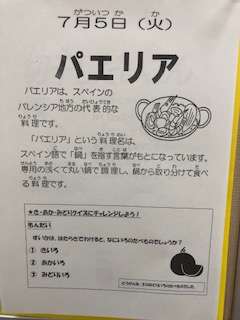 がついつか か
7月5日（火）
パエリア
パエリアは、スペインの
バレンシア地方の代表的な
料理です。
「パエリア」という料理名は、
スペイン語で「鍋」を指す言葉がもとになっています。
専用の浅くて丸い鍋で調理し、鍋から取り分けて食べ
る料理です。
★き・あか・みどりクイズにチャレンジしよう！
もんだい
すいかは、はたらきでわけると、なにいろのたべものでしょうか？
① きいろ
② あかいろ
③ みどりいろ